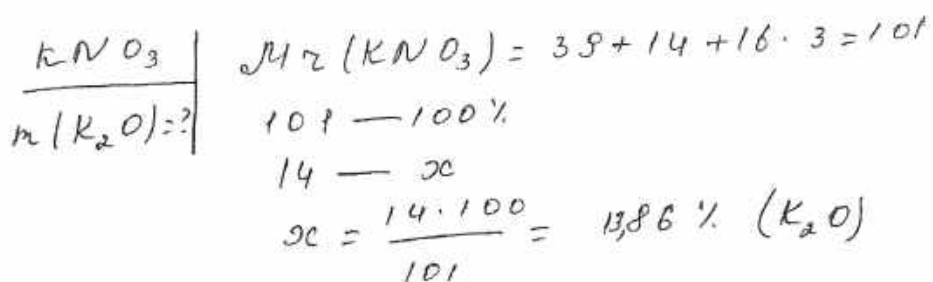 KNO₃
m(K₂O)=?
Mr(KNO₃) = 39+14+16·3=101
101 — 100%
14 — x
x = 14·100/101 = 13,86 % (K₂O)